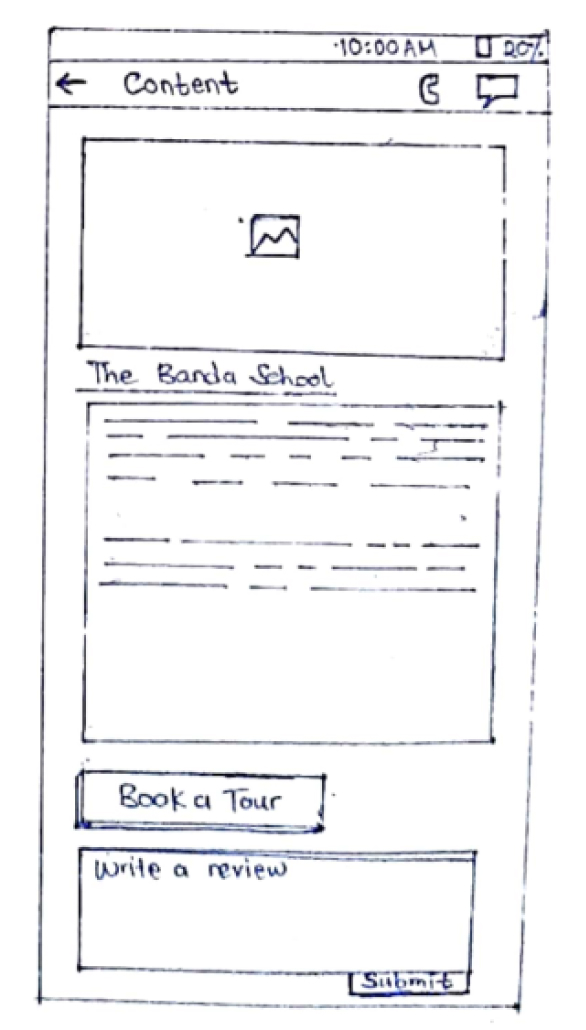 10:00 AM 20%
Content
The Banda School
Book a Tour
Write a review
Submit